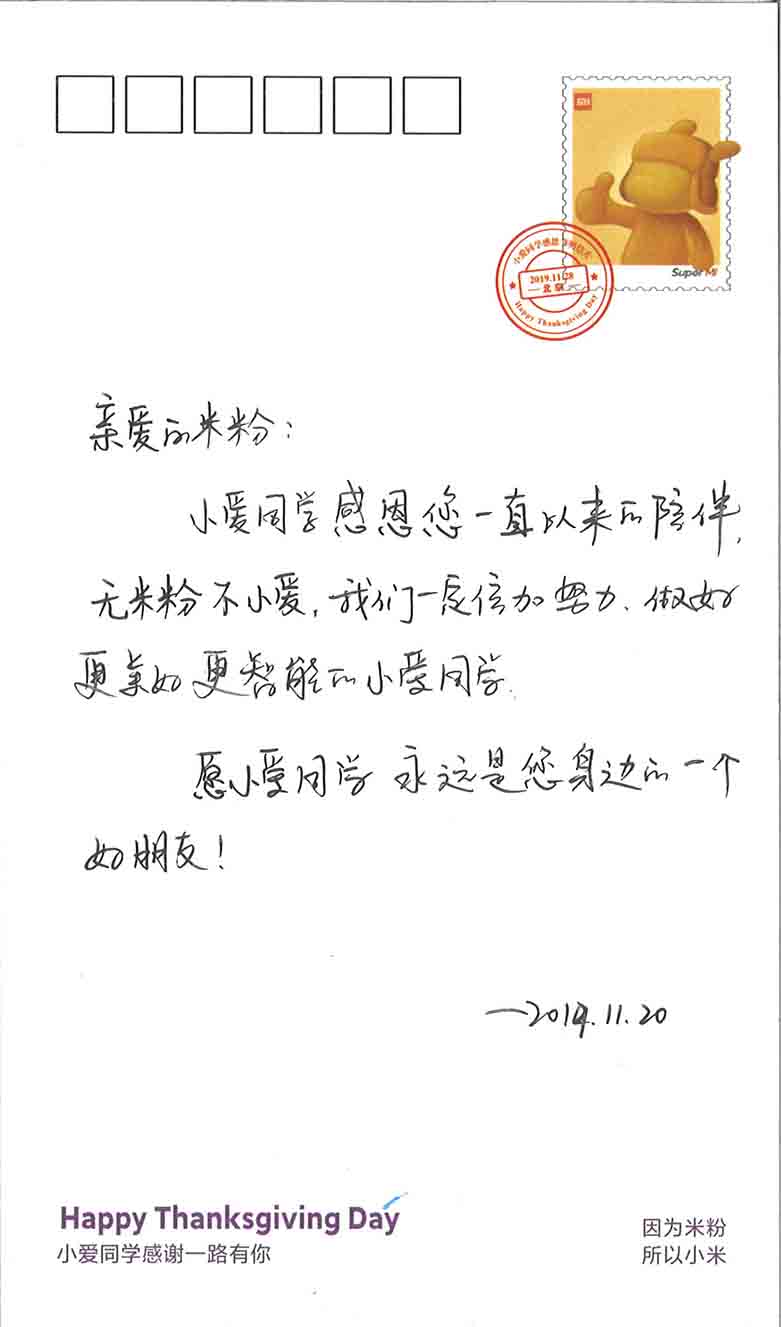 MI
Super Mi
小爱同学感恩节明信片
2019.11.28
北京
Happy Thanksgiving Day
亲爱的米粉：
小爱同学感恩您一直以来的陪伴,
无米粉不小爱,我们一定倍加努力、做好
更亲如更智能的小爱同学.
愿小爱同学永远是您身边的一个
好朋友！
—2019.11.20
Happy Thanksgiving Day
小爱同学感谢一路有你
因为米粉
所以小米